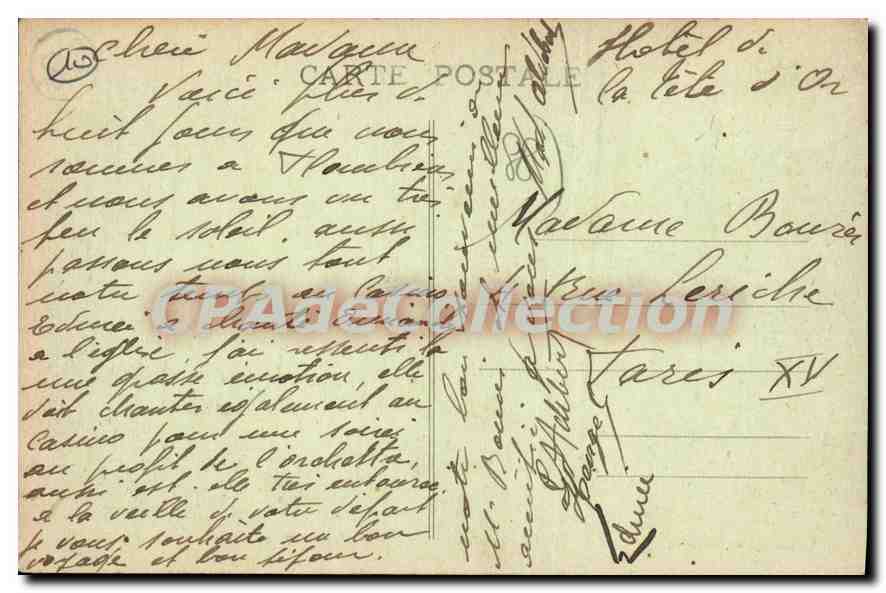 10
Chère Madame
CARTE POSTALE
Voici plus de
huit jours que nous
sommes à Plombières
et nous avons un très
peu le soleil. aussi
passons nous tout
notre temps au Casino
Edmée a chanté
a l'église, j'ai ressenti la
une grosse émotion, elle
doit chanter également au
Casino pour une soirée
au profit de l'orchestre,
aussi est elle très entourée
a la veille de votre départ
je vous souhaite un bon
voyage et bon séjour.
notre bon souvenir a
M. Bourès
amitiés
Edmée
Hôtel de
la Tête d'Or
Madame Bourès
Rue Leriche
Paris XV
CPAdeCollection.com